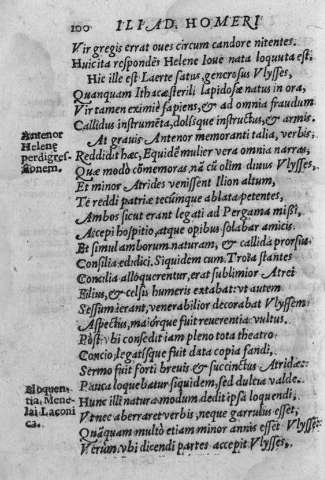 100 ILIAD. HOMERI
Vir gregis errat oues circum candore nitentes.
Huic ita respondẽs Helene Ioue nata loquuta est,
Hic ille est Laerte satus, generosus Vlysses,
Quanquam Ithacæ sterili lapidosa natus in ora,
Vir tamen eximiè sapiens, & ad omnia fraudum
Callidus instrumẽta, dolisque instructus, & armis.
At grauis Antenor memoranti talia, verbis,
Antenor
Helene
perdigres-
sionem.
Reddidit hæc, Equidẽ mulier vera omnia narras,
Quæ modò cõmemoras, nã cũ olim diuus Vlysses,
Et minor Atrides venissent Ilion altum,
Te reddi patriæ tecumque ablata petentes,
Ambos sicut erant legati ad Pergama missi,
Accepi hospitio, atque opibus solabar amicis.
Et simul amborum naturam, & callida prorsus
Consilia edidici. Siquidem cum Troïa stantes
Concilia alloquerentur, erat sublimior Atrei
Filius, & celsis humeris extabat: vt autem
Sessum ierant, venerabilior decorabat Vlyssem
Aspectus, maiorque fuit reuerentia vultus.
Post vbi consedit iam pleno tota theatro
Concio, legatisque fuit data copia fandi,
Sermo fuit forti breuis & succinctus Atridæ:
Eloquen-
tia, Mene-
lai Laconi
ca.
Pauca loquebatur siquidem, sed dulcia valde.
Hunc illi natura modum dedit ipsa loquendi,
Vt nec aberraret verbis, neque garrulus esset,
Quãquam multò etiam minor annis esset Vlysse.
Verùm vbi dicendi partes accepit Vlysses,